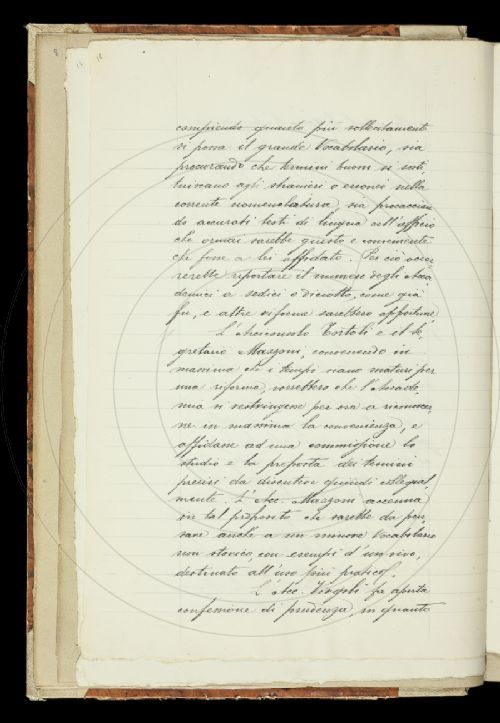 compiendo quanto più sollecitamente
si possa il grande Vocabolario, sia
procurando che termini buoni si sosti,
tuiscano agli stranieri o erronei nella
corrente nomenclatura, sia procaccian
do accurati testi di lingua all'ufficio
che ormai sarebbe giusto e conveniente
che fosse a lei affidato. Per ciò occor
rerebbe riportare il numero degli Acca
demici a sedici o diciotto, come già
fu, e altre riforme sarebbero opportune.
L'Arciconsolo Tortoli e il Se,
gretario Mazzoni, convenendo in
massima che i tempi siano maturi per
una riforma, vorrebbero che l'Accade,
mia si restringesse per ora a riconoscer
ne in massima la convenienza, e
affidasse ad una commissione lo
studio e la proposta dei termini
precisi da discutere quindi collegial,
mente. L'Acc. Mazzoni accenna
in tal proposito che sarebbe da pen,
sare anche a un minore Vocabolario
non storico, con esempi d'uso vivo,
destinato all'uso più pratico.
L'Acc. fa aperta
confessione di prudenza, in quanto